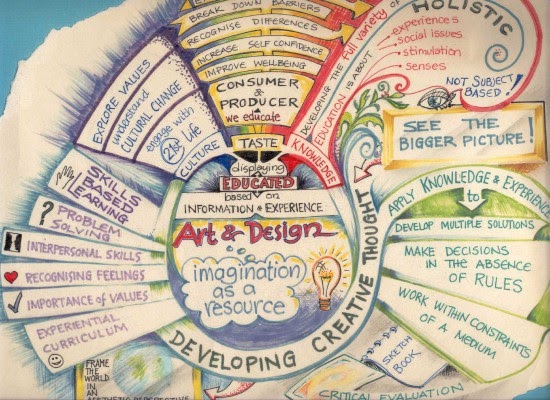 BREAK DOWN BARRIERS
RECOGNISE DIFFERENCES
INCREASE SELF CONFIDENCE
IMPROVE WELLBEING
CONSUMER
&
PRODUCER
we educate
TASTE
displaying
EDUCATED
based on
INFORMATION & EXPERIENCE
Art & Design
imagination
as a
resource
DEVELOPING CREATIVE THOUGHT
EXPLORE VALUES
understand
CULTURAL CHANGE
engage with
21st life
CULTURE
SKILLS
BASED
LEARNING
?
PROBLEM
SOLVING
INTERPERSONAL SKILLS
RECOGNISING FEELINGS
IMPORTANCE OF VALUES
EXPERIENTIAL
CURRICULUM
FRAME
THE
WORLD
IN
AN
AESTHETIC PERSPECTIVE
DEVELOPING THE full variety of
EDUCATION IS ABOUT
KNOWLEDGE
HOLISTIC
experiences
social issues
stimulation
senses
NOT SUBJECT
BASED!
SEE THE
BIGGER PICTURE!
APPLY KNOWLEDGE & EXPERIENCE
to
DEVELOP MULTIPLE SOLUTIONS
MAKE DECISIONS
IN THE ABSENCE
OF RULES
WORK WITHIN CONSTRAINTS
OF A MEDIUM
SKETCH
BOOK
CRITICAL EVALUATION